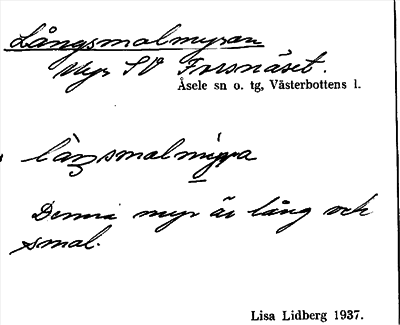 Långsmalmyran
Myr SV Forsnäset.
Åsele sn o. tg, Västerbottens l.
långsmalmyra
Denna myr är lång och
smal.
Lisa Lidberg 1937.